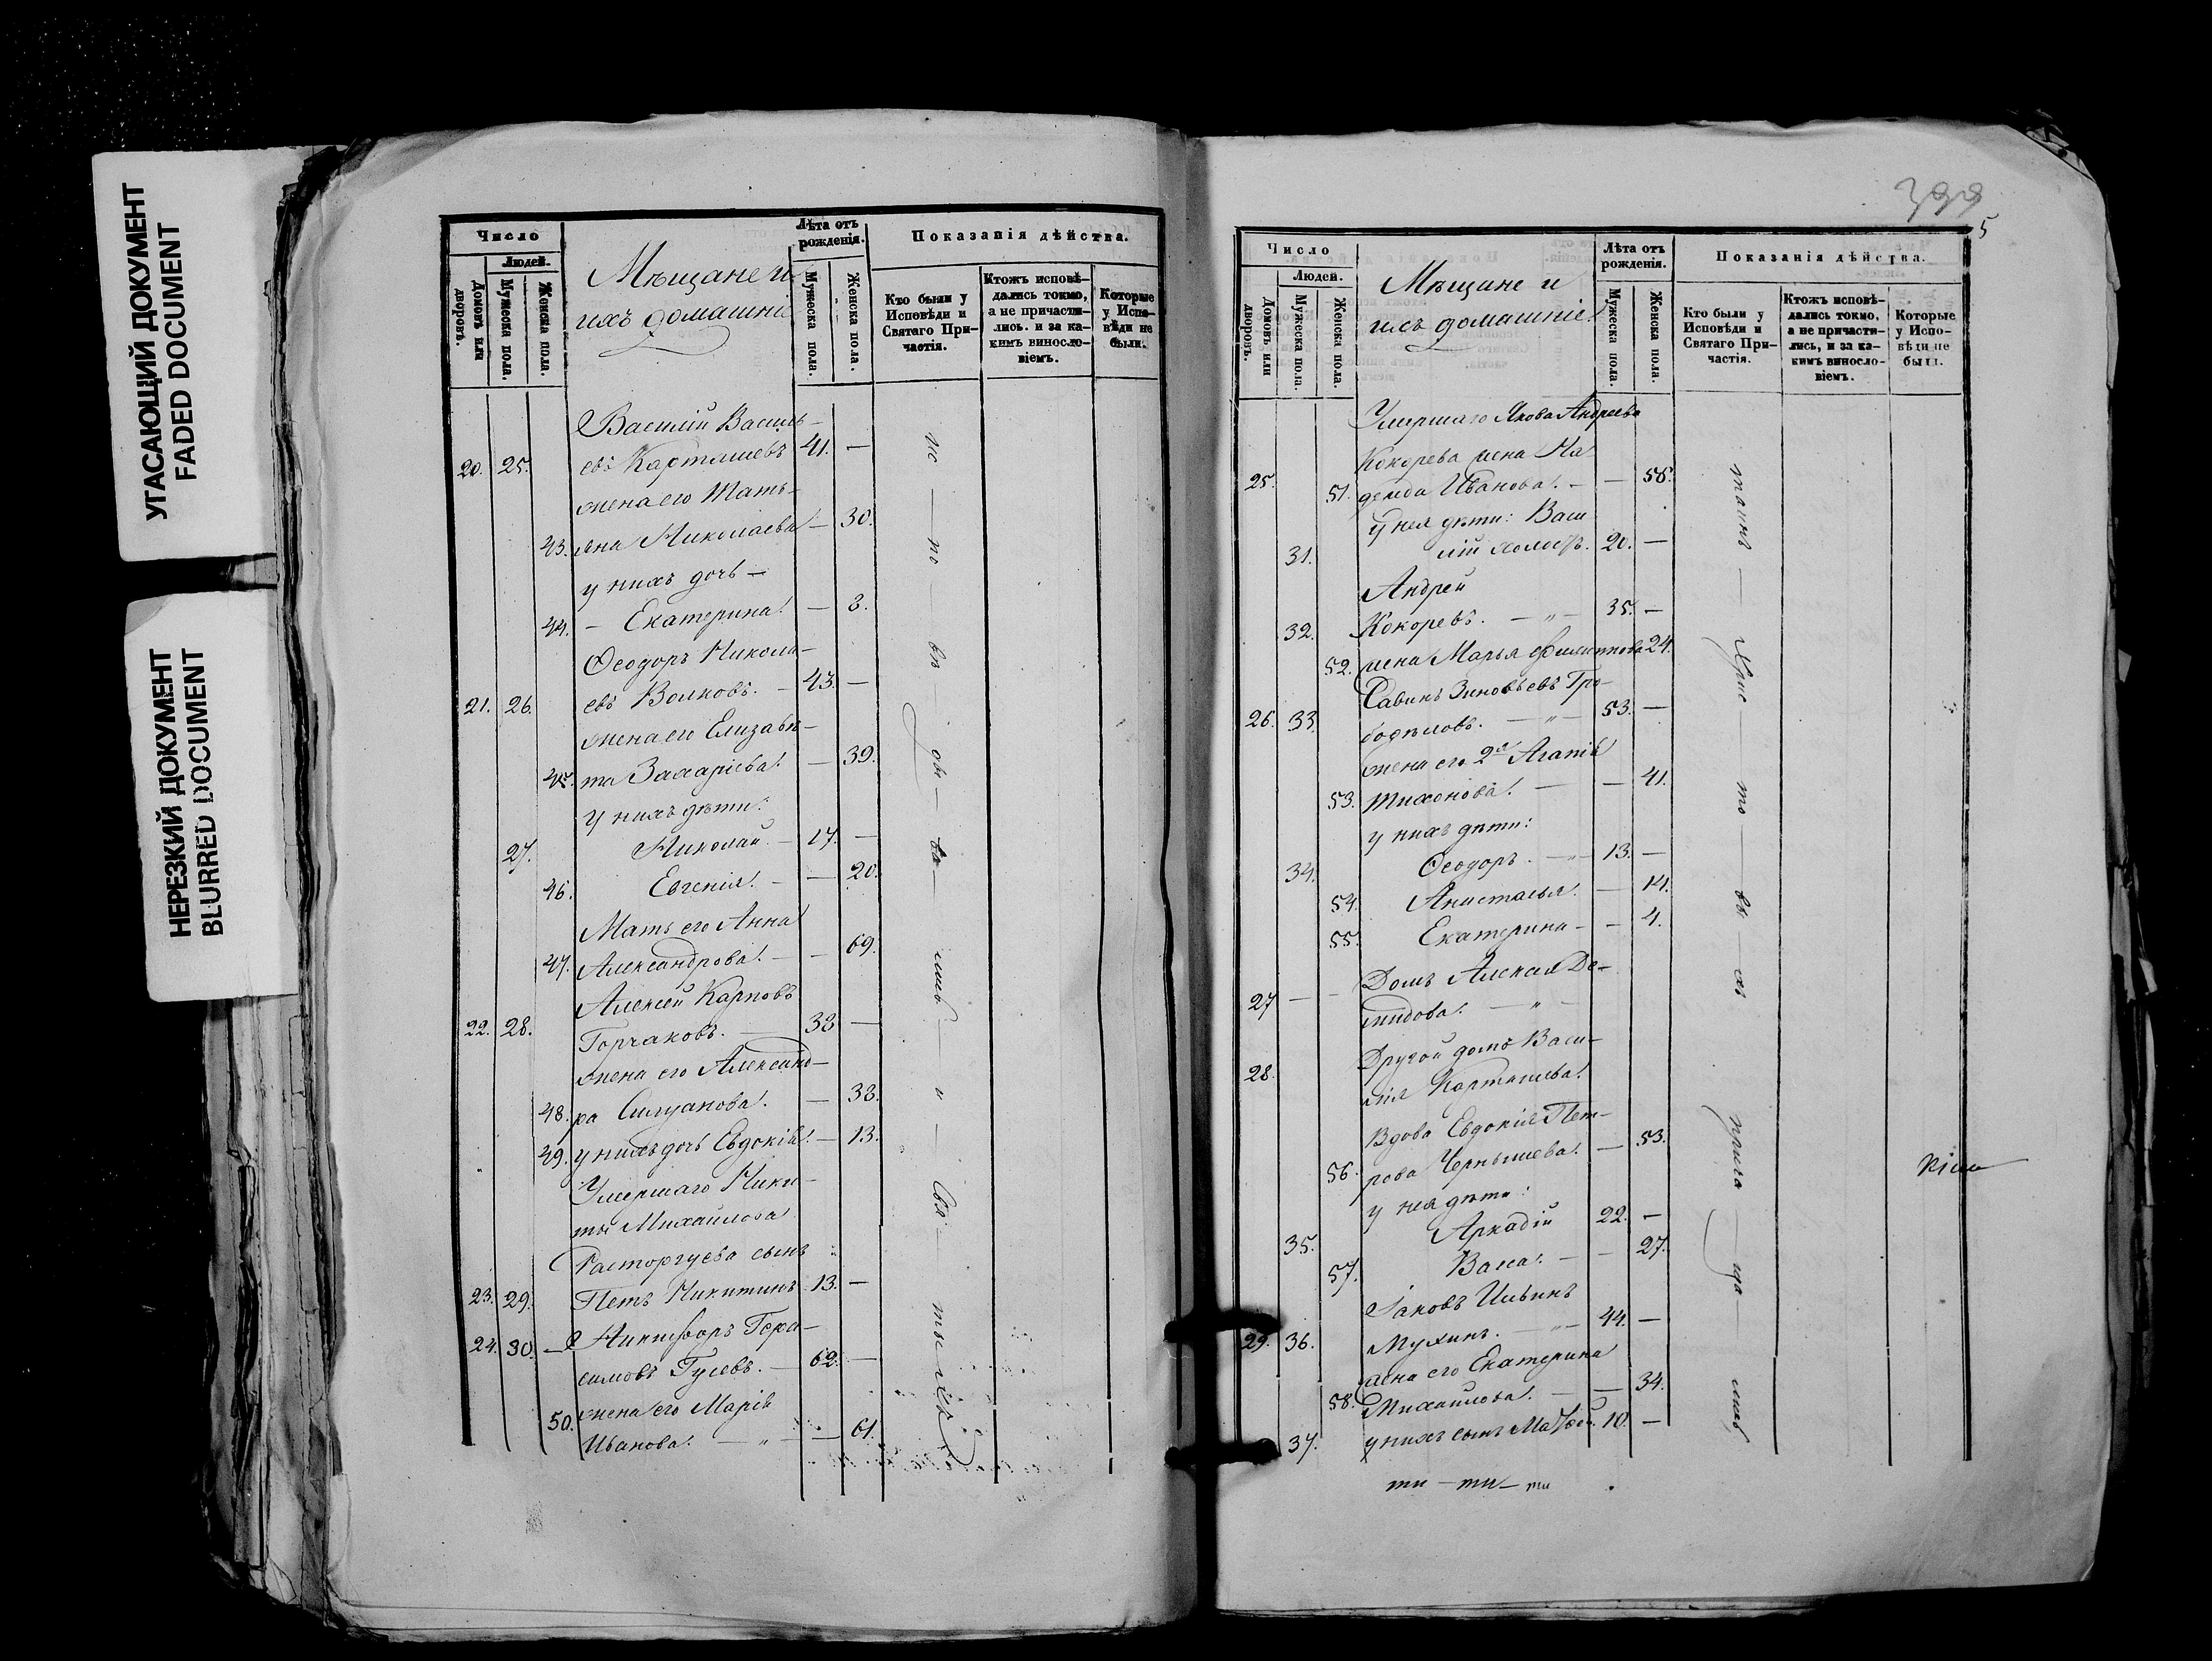 УГАСАЮЩИЙ ДОКУМЕНТ
FADED DOCUMENT
НЕРЕЗКИЙ ДОКУМЕНТ
BLURRED DOCUMENT
Число
Людей.
Домовъ или дворовъ.
Мужеска пола.
Женска пола.
Мѣщане и
ихъ домашніе
Лѣта отъ рожденія.
Мужеска пола.
Женска пола.
Показанія дѣйства.
Кто были у Исповѣди и Святаго Причастія.
Ктожъ исповѣдались токмо, а не причастились. и за какимъ винословіемъ.
Которые у Исповѣди не были.
Василій Василь-
20. 25. евъ Карташевъ 41. —
жена его Тать-
43. яна Николаева — 30.
у нихъ дочь —
44. — Екатерина. — 3.
Ѳеодоръ Никола-
21. 26. евъ Волковъ. — 43. —
жена его Елизаве-
45. та Захаріева. — 39.
У нихъ дѣти:
27. Николай. — 17. —
46. Евгенія. — — 20.
Мать его Анна
47. Александрова. — — 69.
Алексѣй Карповъ
22. 28. Горчаковъ. — 38 —
жена его Александ-
48. ра Силуанова. — 38.
49. у нихъ дочь Евдокія. — 13.
Умершаго Ники-
ты Михайлова
Расторгуева сынъ
23. 29. Петъ Никитинъ 13. —
24. 30. — Никифоръ Гера-
симовъ Гусевъ. — 62. —
50. жена его Марія
Иванова. — „ — — 61.
ис — по — вѣ — ды — ва — лись — и — Свя — тыхъ
5
Число
Людей.
Домовъ или дворовъ.
Мужеска пола.
Женска пола.
Мѣщане и
ихъ домашніе
Лѣта отъ рожденія.
Мужеска пола.
Женска пола.
Показанія дѣйства.
Кто были у Исповѣди и Святаго Причастія.
Ктожъ исповѣдались токмо, а не причастились, и за какимъ винословіемъ.
Которые у Исповѣди не были.
Умершаго Якова Андреева
Кокорева жена На
25. 51. дежда Иванова. — — 58.
у нея дѣти: Васи
31. лій холостъ. 20. —
Андрей
32. Кокоревъ. — „ — 35. —
52. жена Марья Филиппова 24.
Савинъ Зиновьевъ Гро-
26. 33. бодѣловъ. — „ — 53. —
жена его 2я Агапія
53. Тихонова. — — 41.
у нихъ дѣти:
34. Ѳеодоръ. — „ — 13. —
54. Анастасья. — 14.
55. Екатерина — — 4.
Домъ Алексея Де-
27 — — мидова. — „ —
Другой домъ Васи-
28. лія Карташева.
Вдова Евдокія Пет-
56. рова Чернышева. — 53.
у нея дѣти:
35. Аркадій 22. —
57. Васса. — — 27.
Іаковъ Ильинъ
29. 36. Мухинъ. — „ — 44. —
жена его Екатерина
58. Михайлова. — — 34.
37. у нихъ сынъ Матѳей. 10. —
таинъ — Хрис — то — вы — хъ прича — ща — лись
ти — ти — ти